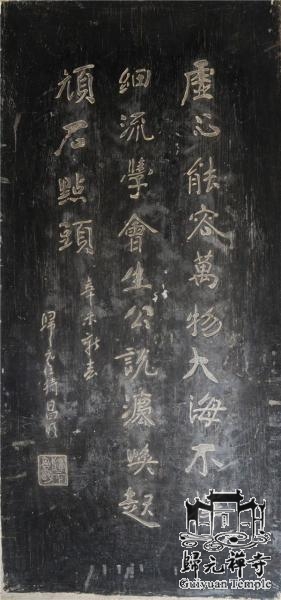 虛心能容萬物大海不
細流學會生公說灋喚起
頑石點頭
辛未新春
歸元寺昌明
歸元禪寺
Guiyuan Temple